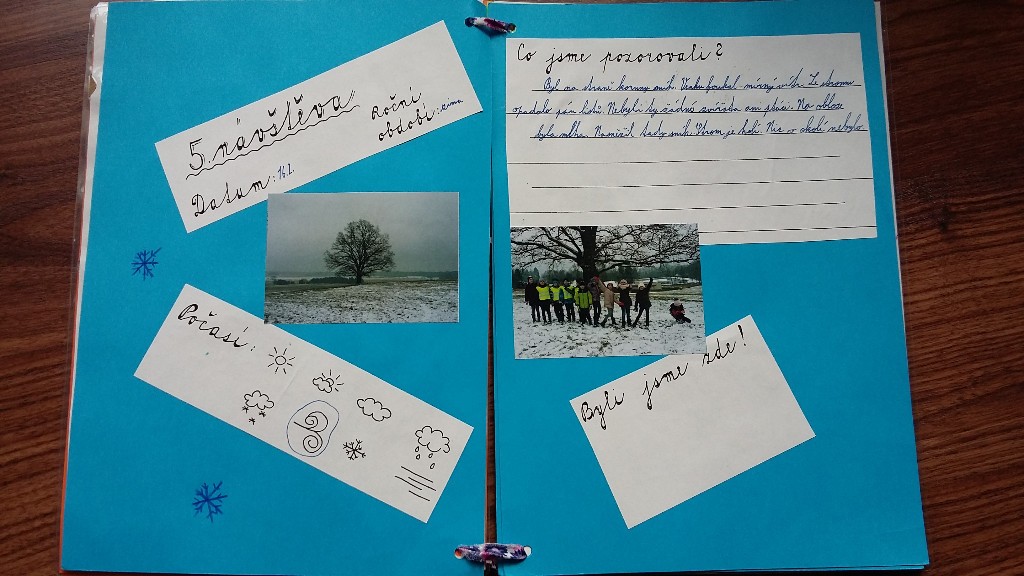 5. návštěva
Roční
období: zima
Datum: 16.1.
Počasí:
Co jsme pozorovali?
Byl na straně koruny sníh. Venku foukal mírný vítr. Ze stromu
opadalo pár listů. Nebyli tu žádné zvířáta ani ptáci. Na obloze
byla mlha. Namrzl tady sníh. Strom je holí. Nic v okolí nebylo.
Byli jsme zde!